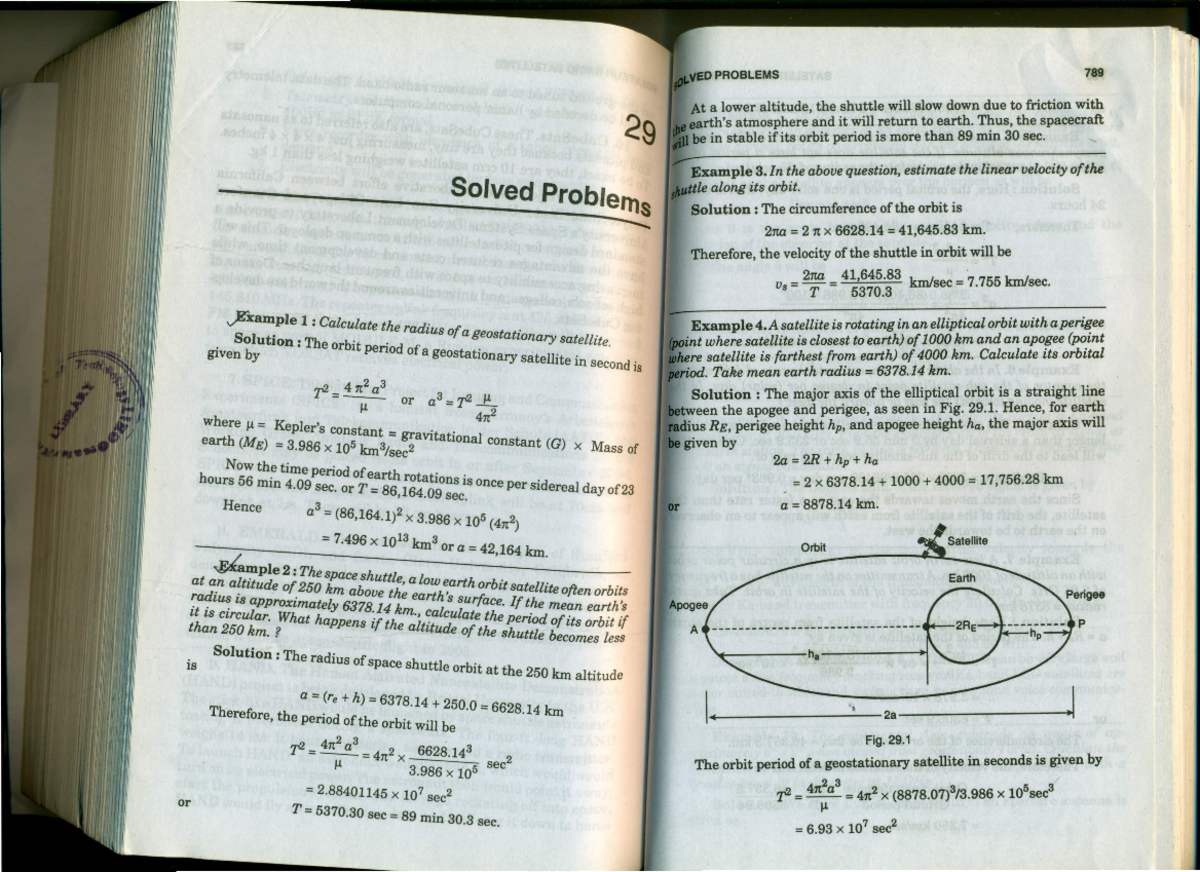 29
Solved Problems
Example 1 : Calculate the radius of a geostationary satellite.
Solution : The orbit period of a geostationary satellite in second is
given by
T² = 4 π² a³ / μ or a³ = T² μ / 4π²
where μ = Kepler's constant = gravitational constant (G) × Mass of
earth (ME) = 3.986 × 10⁵ km³/sec²
Now the time period of earth rotations is once per sidereal day of 23
hours 56 min 4.09 sec. or T = 86,164.09 sec.
Hence a³ = (86,164.1)² × 3.986 × 10⁵ (4π²)
= 7.496 × 10¹³ km³ or a = 42,164 km.
Example 2 : The space shuttle, a low earth orbit satellite often orbits
at an altitude of 250 km above the earth's surface. If the mean earth's
radius is approximately 6378.14 km., calculate the period of its orbit if
it is circular. What happens if the altitude of the shuttle becomes less
than 250 km. ?
Solution : The radius of space shuttle orbit at the 250 km altitude
is
a = (re + h) = 6378.14 + 250.0 = 6628.14 km
Therefore, the period of the orbit will be
T² = 4π² a³ / μ = 4π² × 6628.14³ / 3.986 × 10⁵ sec²
= 2.88401145 × 10⁷ sec²
or T = 5370.30 sec = 89 min 30.3 sec.
SOLVED PROBLEMS 789
At a lower altitude, the shuttle will slow down due to friction with
the earth's atmosphere and it will return to earth. Thus, the spacecraft
will be in stable if its orbit period is more than 89 min 30 sec.
Example 3. In the above question, estimate the linear velocity of the
shuttle along its orbit.
Solution : The circumference of the orbit is
2πa = 2 π × 6628.14 = 41,645.83 km.
Therefore, the velocity of the shuttle in orbit will be
υs = 2πa / T = 41,645.83 / 5370.3 km/sec = 7.755 km/sec.
Example 4. A satellite is rotating in an elliptical orbit with a perigee
(point where satellite is closest to earth) of 1000 km and an apogee (point
where satellite is farthest from earth) of 4000 km. Calculate its orbital
period. Take mean earth radius = 6378.14 km.
Solution : The major axis of the elliptical orbit is a straight line
between the apogee and perigee, as seen in Fig. 29.1. Hence, for earth
radius RE, perigee height hp, and apogee height ha, the major axis will
be given by
2a = 2R + hp + ha
= 2 × 6378.14 + 1000 + 4000 = 17,756.28 km
or a = 8878.14 km.
Orbit Satellite
Earth
Apogee Perigee
A 2RE P
hp
ha
2a
Fig. 29.1
The orbit period of a geostationary satellite in seconds is given by
T² = 4π²a³ / μ = 4π² × (8878.07)³/3.986 × 10⁵sec³
= 6.93 × 10⁷ sec²
LIBRARY